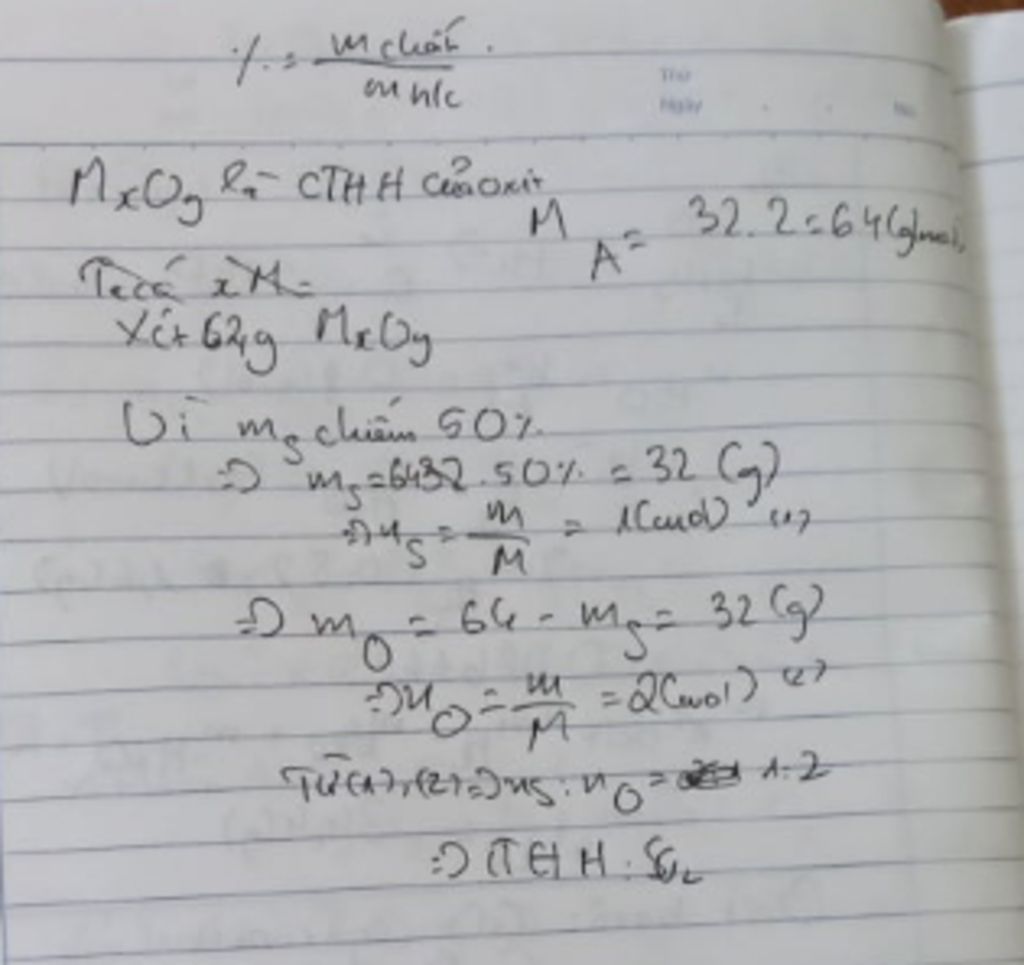 % = m chất / m h/c
Thứ
Ngày No
MxOy là CTHH của oxit
M A = 32.2 = 64 (g/mol)
Ta có xM =
Xét 64g MxOy
Vì mS chiếm 50%
=> mS = 6432.50% = 32 (g)
=> nS = m/M = 1(mol) (1)
=> mO = 64 - mS = 32 (g)
=> nO = m/M = 2(mol) (2)
Từ (1), (2) => nS : nO = 1:2
=> CTHH : SO2